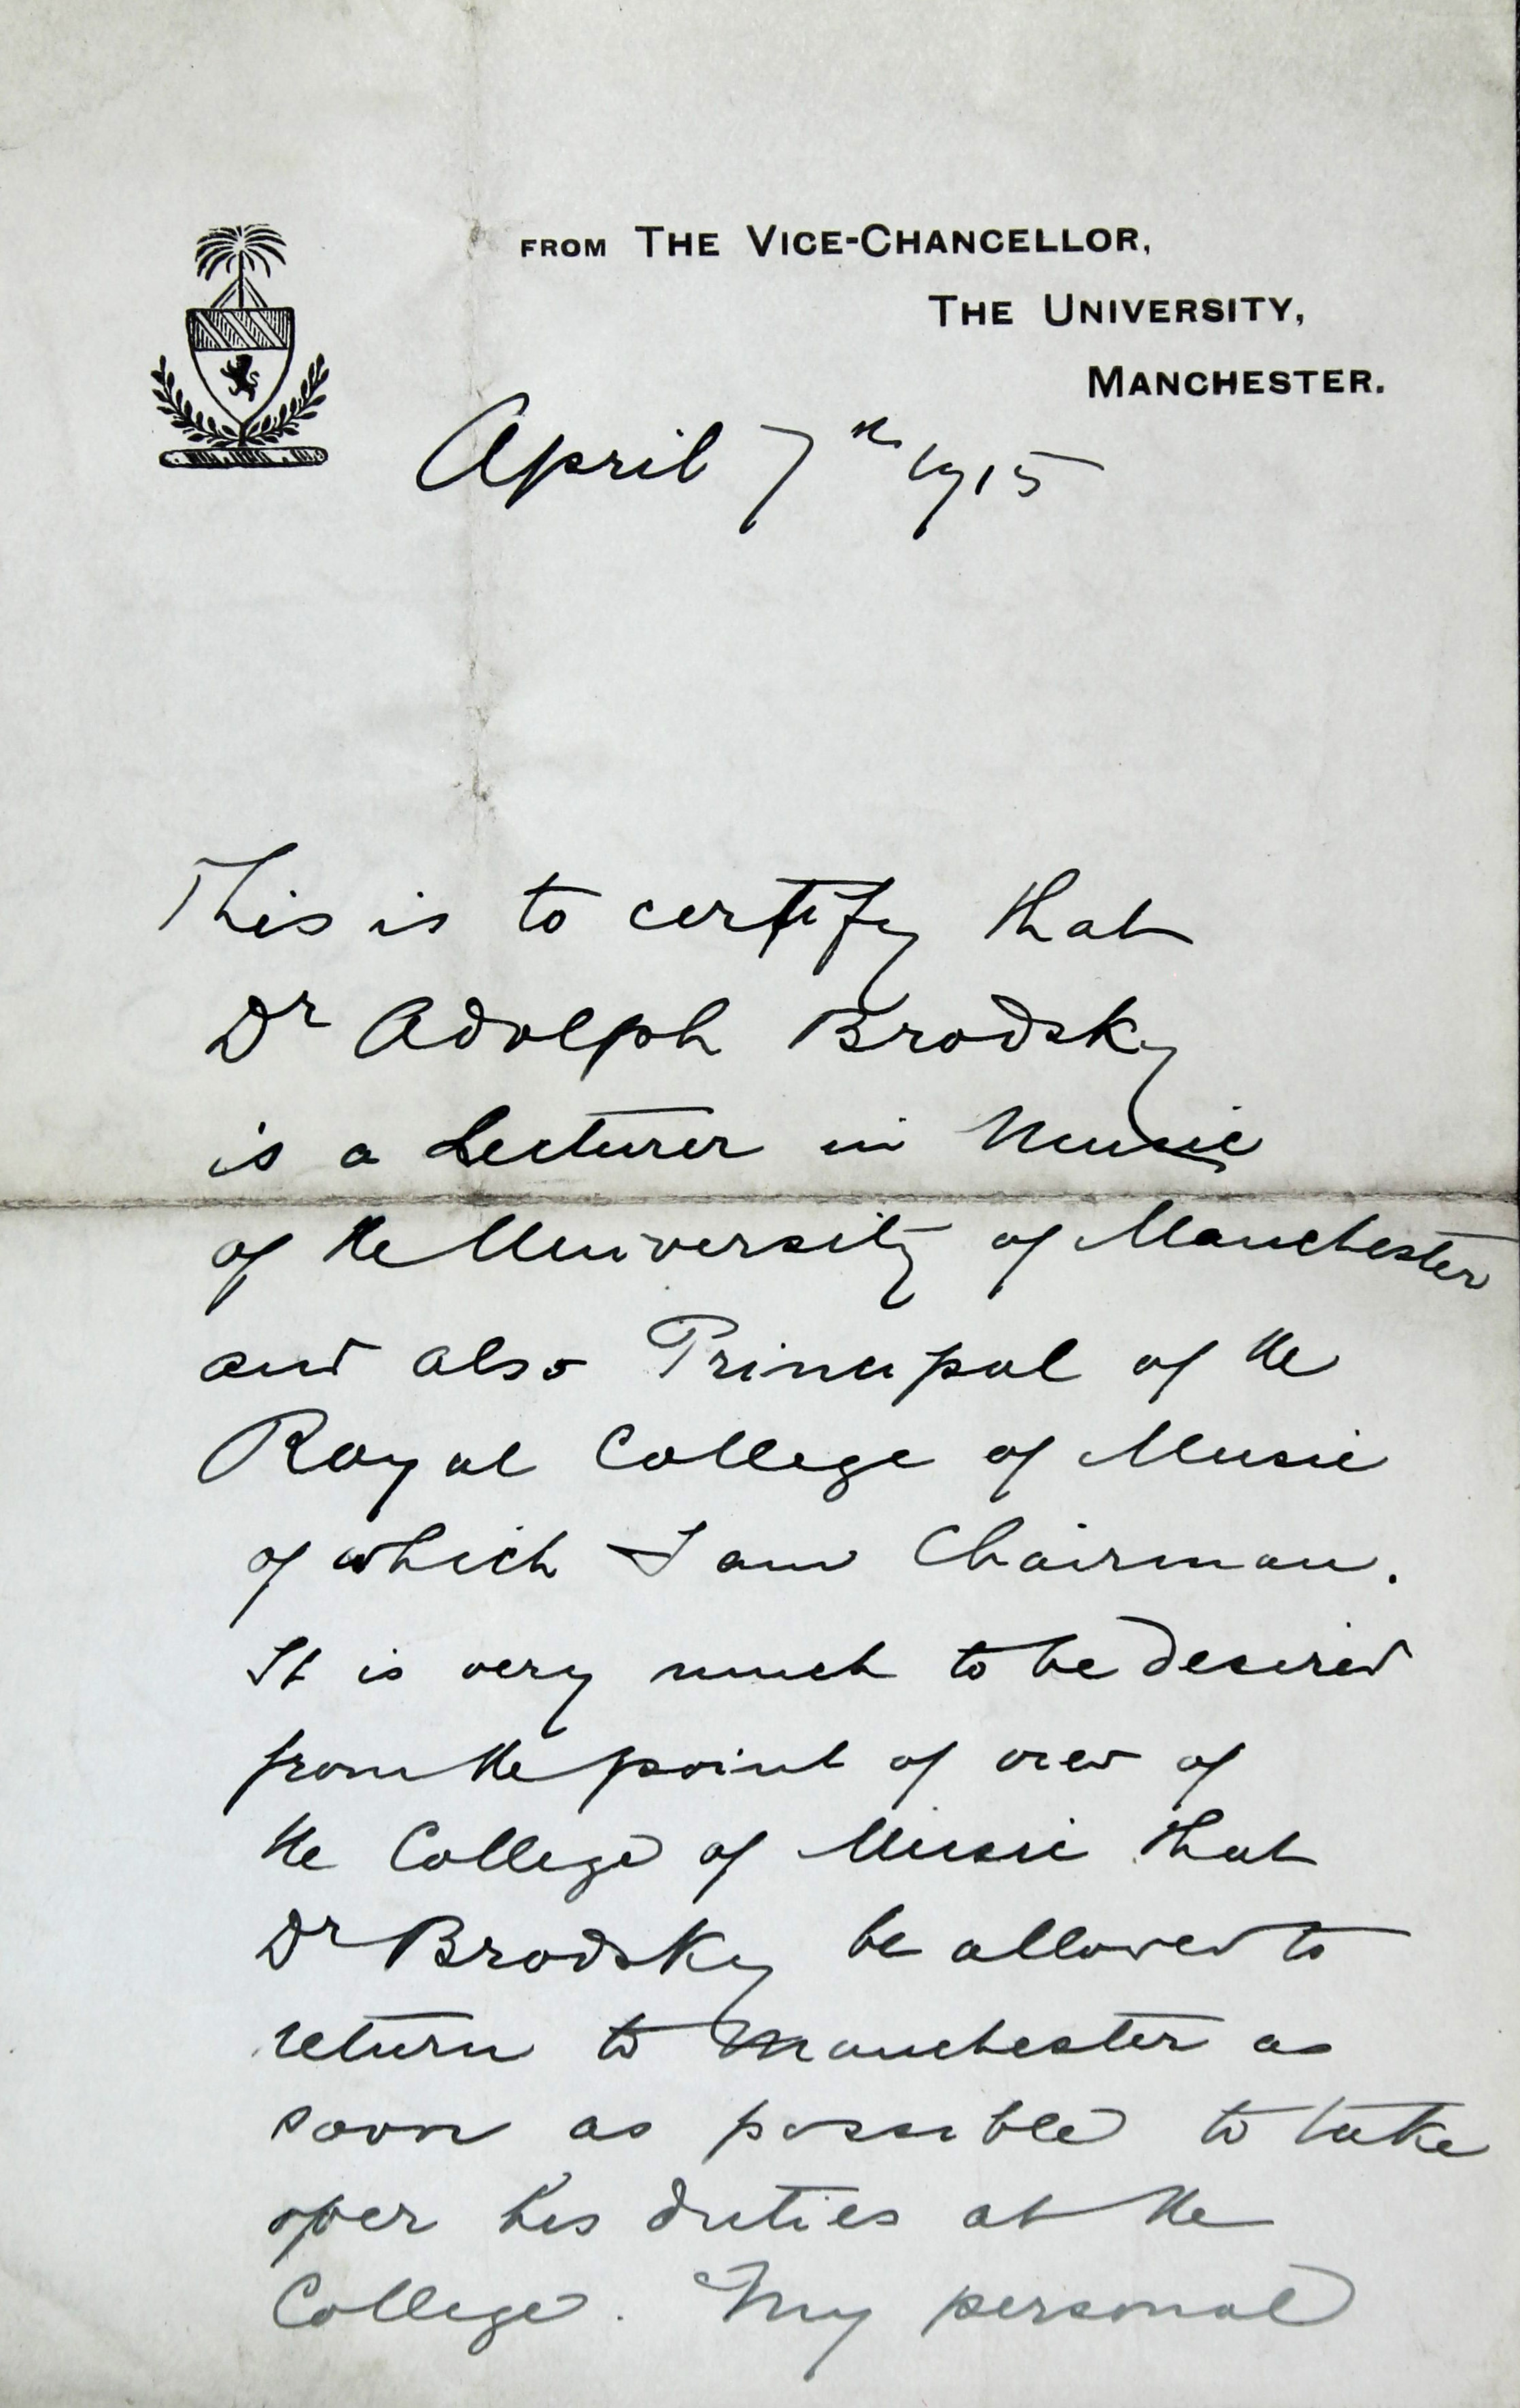 FROM THE VICE-CHANCELLOR,
THE UNIVERSITY,
MANCHESTER.
April 7th 1915
This is to certify that
Dr Adolph Brodsky
is a Lecturer in Music
of the University of Manchester
and also Principal of the
Royal College of Music
of which I am Chairman.
It is very much to be desired
from the point of view of
the College of Music that
Dr Brodsky be allowed to
return to Manchester as
soon as possible to take
over his duties at the
College. My personal